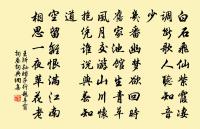 白石飛仙紫霞凄
調斷歌人聽知音
少
幾番幽夢欲回時
舊家池館生青草
風月交遊山川懷
抱憑誰說與春知
道
空留離恨滿江南
相思一夜蘋花老
王沂孫踏莎行題草窗